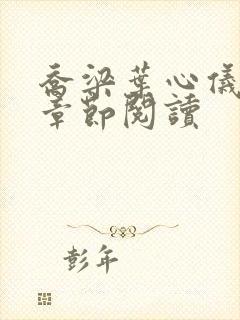 喬梁葉心儀
章節閱讀
彭年